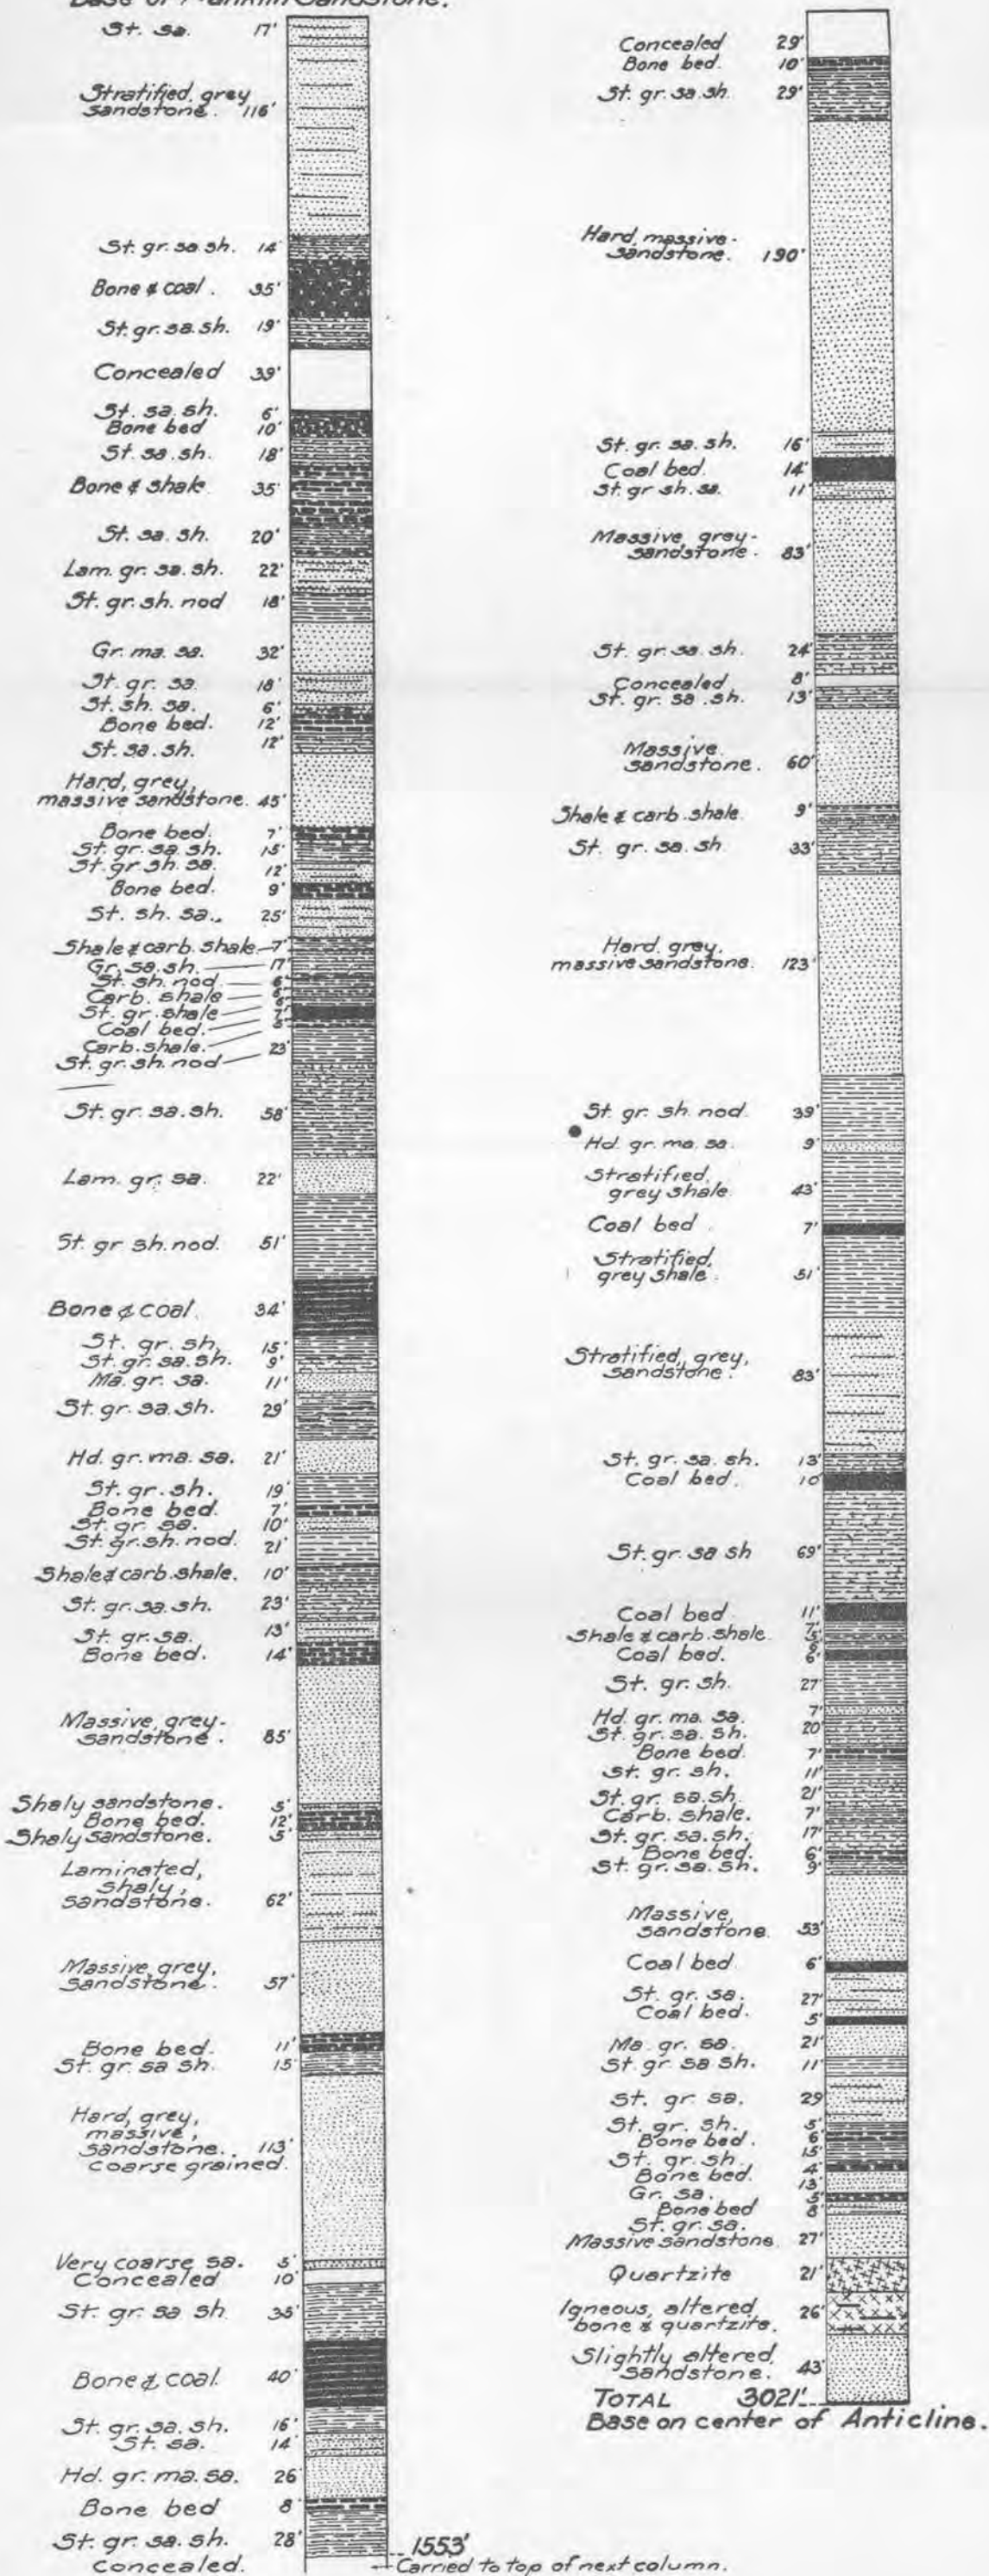 Base of Franklin Sandstone.
St. sa. 17'
Stratified, grey
sandstone. 116'
St. gr. sa. sh. 14'
Bone & coal. 35'
St. gr. sa. sh. 19'
Concealed 39'
St. sa. sh. 6'
Bone bed 10'
St. sa. sh. 18'
Bone & shale 35'
St. sa. sh. 20'
Lam. gr. sa. sh. 22'
St. gr. sh. nod 18'
Gr. ma. sa. 32'
St. gr. sa. 18'
St. sh. sa. 6'
Bone bed. 12'
St. sa. sh. 12'
Hard, grey,
massive sandstone. 45'
Bone bed. 7'
St. gr. sa. sh. 15'
St. gr. sh. sa. 12'
Bone bed. 9'
St. sh. sa. 25'
Shale & carb. shale 7'
Gr. sa. sh. 17'
St. sh. nod. 6'
Carb. shale 6'
St. gr. shale 6'
Coal bed. 7'
Carb. shale. 5'
St. gr. sh. nod 23'
St. gr. sa. sh. 58'
Lam. gr. sa. 22'
St. gr sh. nod. 51'
Bone & coal. 34'
St. gr. sh, 15'
St. gr. sa. sh. 9'
Ma. gr. sa. 11'
St. gr. sa. sh. 29'
Hd. gr. ma. sa. 21'
St. gr. sh. 19'
Bone bed. 7'
St. gr. sa. 10'
St. gr. sh. nod. 21'
Shale & carb. shale. 10'
St. gr. sa. sh. 23'
St. gr. sa. 13'
Bone bed. 14'
Massive, grey-
sandstone. 85'
Shaly sandstone. 5'
Bone bed. 12'
Shaly sandstone. 5'
Laminated,
shaly,
sandstone. 62'
Massive, grey,
sandstone. 57'
Bone bed. 11'
St. gr. sa sh. 15'
Hard, grey,
massive,
sandstone. 113'
Coarse grained.
Very coarse sa. 5'
Concealed 10'
St. gr. sa sh. 35'
Bone & coal. 40'
St. gr. sa. sh. 16'
St. sa. 14'
Hd. gr. ma. sa. 26'
Bone bed 8'
St. gr. sa. sh. 28'
1553'
Concealed.
Carried to top of next column.
Concealed 29'
Bone bed. 10'
St. gr. sa. sh. 29'
Hard, massive-
sandstone. 190'
St. gr. sa. sh. 16'
Coal bed. 14'
St. gr sh. sa. 11'
Massive, grey-
sandstone. 83'
St. gr. sa. sh. 24'
Concealed 8'
St. gr. sa. sh. 13'
Massive
sandstone. 60'
Shale & carb. shale 9'
St. gr. sa. sh 33'
Hard, grey,
massive sandstone. 123'
St. gr. sh. nod. 39'
Hd. gr. ma. sa. 9'
Stratified,
grey shale 43'
Coal bed. 7'
Stratified,
grey shale. 51'
Stratified, grey,
sandstone. 83'
St. gr. sa. sh. 13'
Coal bed. 10'
St. gr. sa sh 69'
Coal bed 11'
7'
Shale & carb. shale. 5'
Coal bed. 6'
St. gr. sh. 27'
Hd. gr. ma. sa. 7'
St. gr. sa. sh. 20'
Bone bed. 7'
St. gr. sh. 11'
St. gr. sa. sh 21'
Carb. shale. 7'
St. gr. sa. sh. 17'
Bone bed. 6'
St. gr. sa. sh. 9'
Massive,
sandstone 53'
Coal bed 6'
St. gr. sa. 27'
Coal bed. 5'
Ma. gr. sa. 21'
St. gr sa sh. 11'
St. gr sa. 29
St. gr. sh. 5'
Bone bed. 6'
St. gr. sh 15'
Bone bed. 4'
Gr. sa. 13'
Bone bed 5'
St. gr. sa. 8'
Massive sandstone 27'
Quartzite 21'
Igneous, altered
bone & quartzite. 26'
Slightly altered
sandstone. 43'
TOTAL 3021'
Base on center of Anticline.